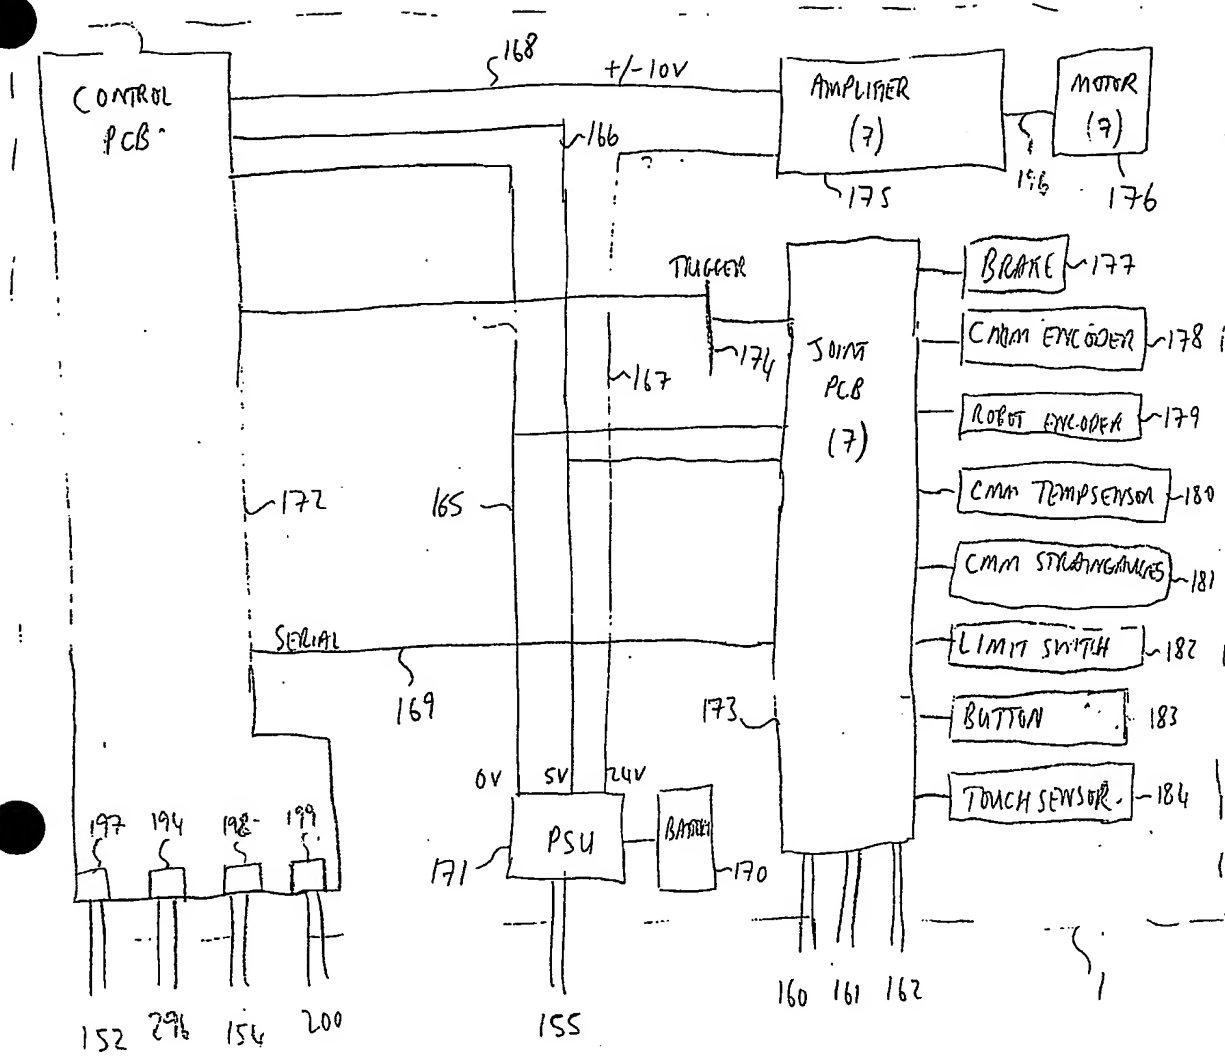 168
+/-10V
CONTROL
PCB
AMPLIFIER
(7)
MOTOR
(7)
166
175
196
176
TRIGGER
BRAKE
177
CMM ENCODER
178
174
JOINT
PCB
(7)
167
ROBOT ENCODER
179
172
165
CMM TEMPSENSOR
180
CMM STRAINGAUGES
181
SERIAL
169
LIMIT SWITCH
182
173
BUTTON
183
0V
5V
24V
TOUCH SENSOR
184
197
194
198
199
PSU
BATTERY
171
170
160
161
162
1
152
296
154
200
155